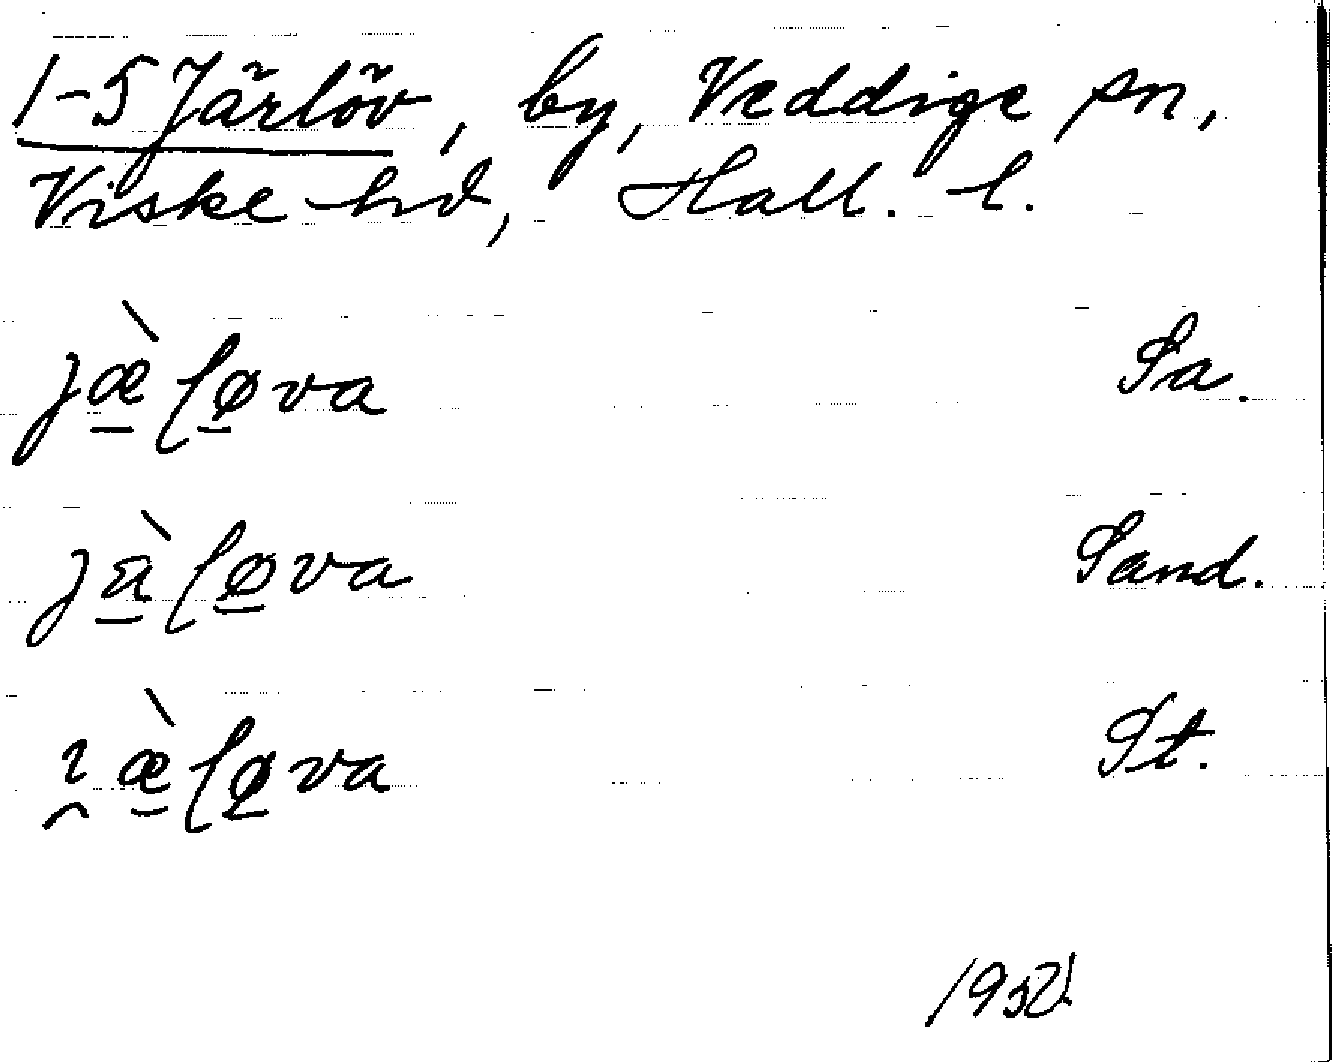 1-5 Järlöv, by, Veddige sn,
Viske hd, Hall. l.
jæ̠̀ſø̠va Sa.
jä̠̀ſø̠va Sand.
ı̯æ̠̀ſø̠va St.